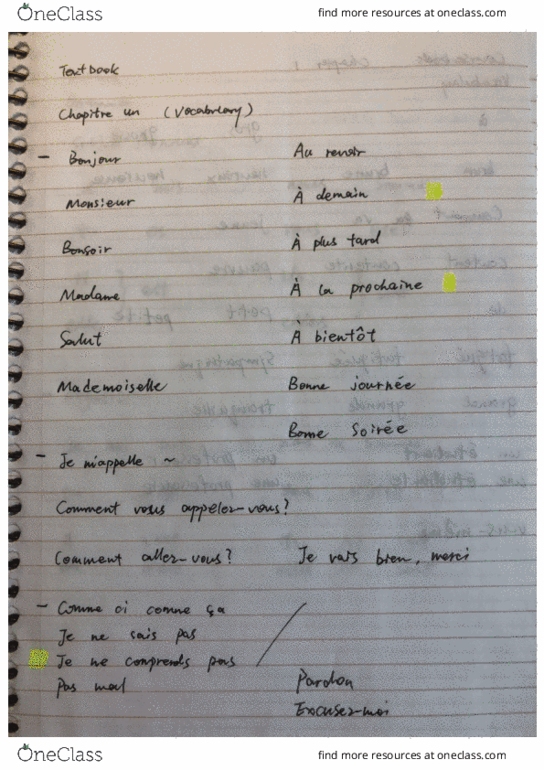 OneClass find more resources at oneclass.com
Textbook
Chapitre un (Vocabulary)
- Bonjour Au revoir
Monsieur À demain
Bonsoir À plus tard
Madame À la prochaine
Salut À bientôt
Mademoiselle Bonne journée
Bonne soirée
- Je m'appelle ~
Comment vous appelez-vous?
Comment allez-vous? Je vais bien, merci
- Comme ci comme ça
Je ne sais pas
Je ne comprends pas
Pas mal Pardon
Excusez-moi
OneClass find more resources at oneclass.com